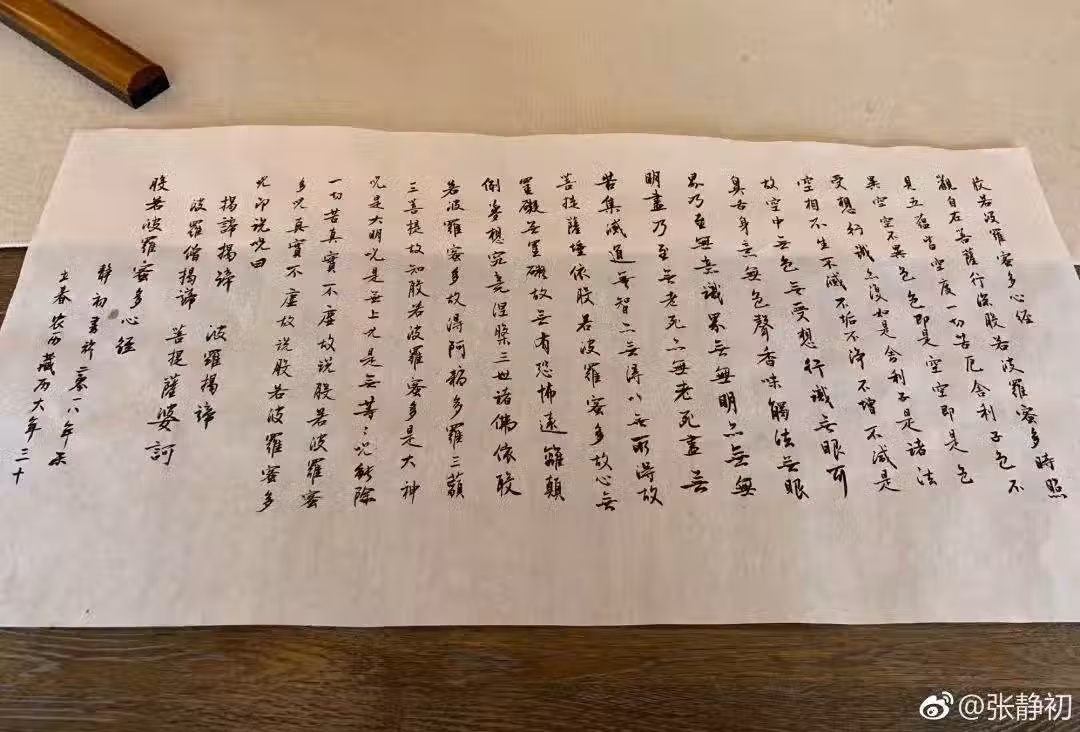 般若波羅蜜多心經
觀自在菩薩行深般若波羅蜜多時照
見五蘊皆空度一切苦厄舍利子色不
異空空不異色色即是空空即是色
受想行識亦復如是舍利子是諸法
空相不生不滅不垢不淨不增不減是
故空中無色無受想行識無眼耳
鼻舌身意無色聲香味觸法無眼
界乃至無意識界無無明亦無無
明盡乃至無老死亦無老死盡無
苦集滅道無智亦無得以無所得故
菩提薩埵依般若波羅蜜多故心無
罣礙無罣礙故無有恐怖遠離顛
倒夢想究竟涅槃三世諸佛依般
若波羅蜜多故得阿耨多羅三藐
三菩提故知般若波羅蜜多是大神
咒是大明咒是無上咒是無等〻咒能除
一切苦真實不虛故說般若波羅蜜
多咒真實不虛故說般若波羅蜜多
咒即說咒曰
揭諦揭諦 波羅揭諦
波羅僧揭諦 菩提薩婆訶
般若波羅蜜多心經
靜初書於二零一八年
立春 农西藏历大年三十
@张静初